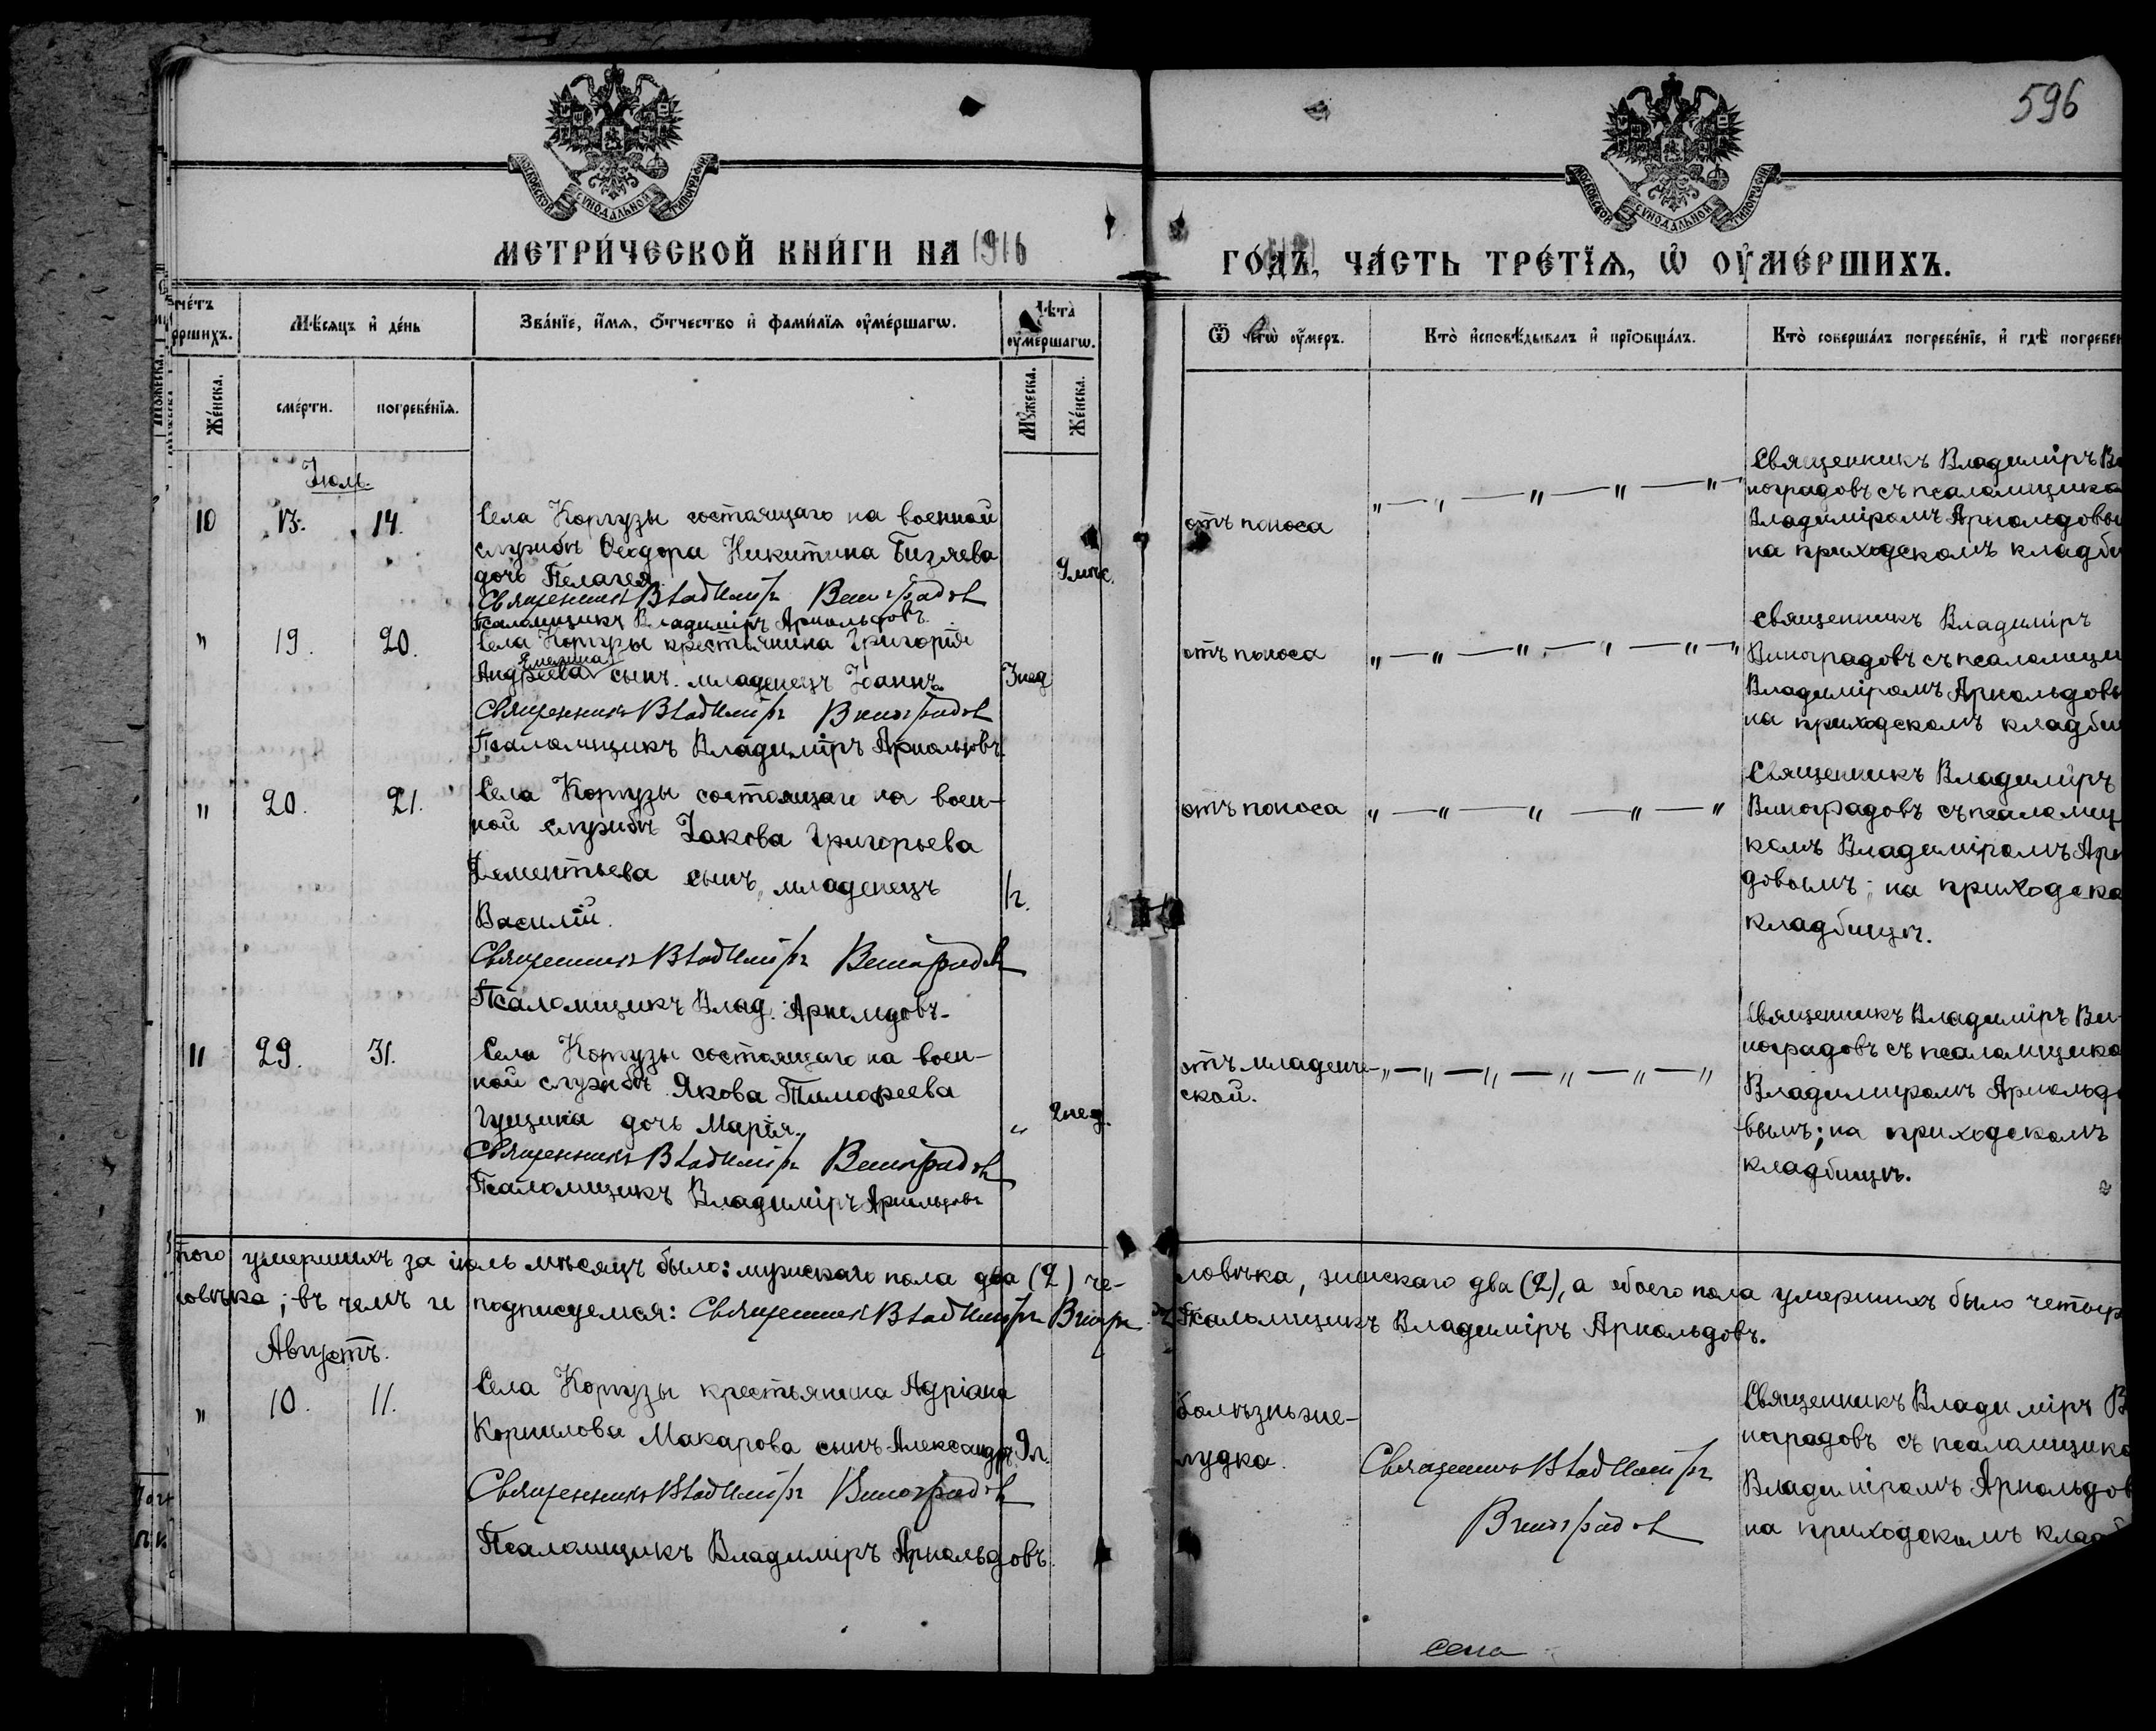 596
МОСКОВСКОЙ СѴНОДАЛЬНОЙ ТИПОГРАФІИ
МОСКОВСКОЙ СѴНОДАЛЬНОЙ ТИПОГРАФІИ
МЕТРИ́ЧЕСКОЙ КНИ́ГИ НА 1916
ГО́ДЪ, ЧА́СТЬ ТРЕ́ТЇѦ, Ѡ҆ ОУ҆МЕ́РШИХЪ.
Мѣ́сяцъ и҆ де́нь
Зва́нїе, и҆́мя, ѻ҆́тчество и҆ фами́лїѧ оу҆ме́ршагѡ.
Лѣ́та оу҆ме́ршагѡ.
Ѿ чегѡ̀ оу҆́меръ.
Кто̀ и҆сповѣ́дывалъ и҆ прїѡбща́лъ.
Кто̀ соверша́лъ погребе́нїе, и҆ гдѣ̀ погребен
Же́нска.
сме́рти.
погребе́нїѧ.
Мꙋ́жеска.
Же́нска.
Іюль.
10 13. 14.
Села Коргузы состоящаго на военной
службѣ Ѳеодора Никитина Бизяева
дочь Пелагея.
Священникъ Владиміръ Виноградовъ
Псаломщикъ Владиміръ Арнольдовъ.
9 мѣс.
отъ поноса
„ — „ — „ — „ — „
Священникъ Владиміръ Ви
ноградовъ съ псаломщико
Владиміромъ Арнольдовы
на приходскомъ кладби
„ 19. 20.
Села Коргузы крестьянина Григорія
Андреева сынъ младенецъ Іоаннъ.
Священникъ Владиміръ Виноградовъ
Псаломщикъ Владиміръ Арнольдовъ.
3 нед
отъ поноса
„ — „ — „ — „ — „ — „
Священникъ Владиміръ
Виноградовъ съ псаломщи
Владиміромъ Арнольдовы
на приходскомъ кладби
„ 20. 21.
Села Коргузы состоящаго на воен-
ной службѣ Іакова Григорьева
Дементьева сынъ, младенецъ
Василій.
Священникъ Владиміръ Виноградовъ
Псаломщикъ Влад. Арнольдовъ.
1 г.
отъ поноса
„ — „ — „ — „ — „
Священникъ Владиміръ
Виноградовъ съ псаломщи
комъ Владиміромъ Арн
довымъ; на приходско
кладбищѣ.
„ 29. 31.
Села Коргузы состоящаго на воен-
ной службѣ Якова Тимофеева
Гущина дочь Марія.
Священникъ Владиміръ Виноградовъ
Псаломщикъ Владиміръ Арнольдовъ
„ 2 нед.
отъ младенче-
ской.
„ — „ — „ — „ — „ — „
Священникъ Владиміръ Ви-
ноградовъ съ псаломщико
Владимиромъ Арнольдо
вымъ; на приходскомъ
кладбищѣ.
того умершихъ за іюль мѣсяцъ было: мужскаго пола два (2) че-
ловѣка, женскаго два (2), а обоего пола умершихъ было четыр
ловѣка; въ чемъ и подписуемся: Священникъ Владиміръ Виноградовъ
Псаломщикъ Владиміръ Арнольдовъ.
Августъ.
„ 10. 11.
Села Коргузы крестьянина Адріана
Корнилова Макарова сынъ Александръ
Священникъ Владиміръ Виноградовъ
Псаломщикъ Владиміръ Арнольдовъ.
9 л.
болѣзнь же-
лудка.
Священникъ Владиміръ
Виноградовъ
Священникъ Владиміръ В
ноградовъ съ псаломщико
Владиміромъ Арнольдов
на приходскомъ кладб